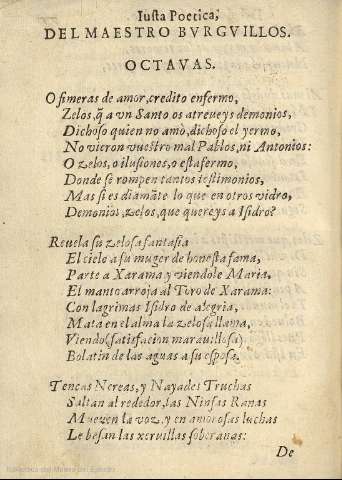 Iusta Poetica,
DEL MAESTRO BVRGVILLOS.
OCTAVAS.
O fimeras de amor, credito enfermo,
Zelos, q̃ a vn Santo os atreueys demonios,
Dichoso quien no amò, dichoso el yermo,
No vieron vuestro mal Pablos, ni Antonios:
O zelos, o ilusiones, o estafermo,
Donde se rompen tantos testimonios,
Mas si es diamãte lo que en otros vidro,
Demonios, zelos, que quereys a Isidro?
Reuela su zelosa fantasia
El cielo a su muger de honesta fama,
Parte a Xarama, y viendole Maria,
El manto arroja al Toro de Xarama:
Con lagrimas Isidro de alegria,
Mata en el alma la zelosa llama,
Viendo (satisfacion marauillosa)
Bolatin de las aguas a su esposa.
Tencas Nereas, y Nayades Truchas
Saltan al rededor, las Ninfas Ranas
Mueuen la voz, y en amorosas luchas
Le besan las xeruillas soberanas:
De
Biblioteca del Museo del Ejército